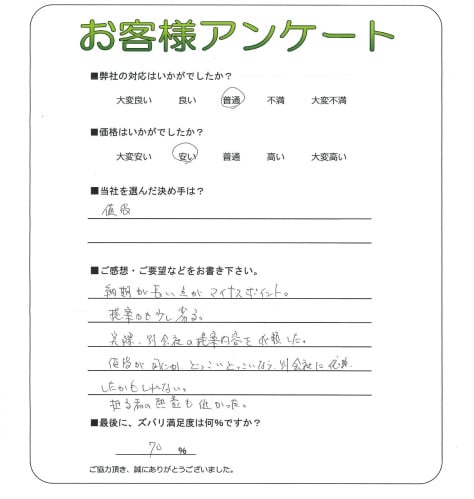 お客様アンケート
■弊社の対応はいかがでしたか？
大変良い 良い 普通 不満 大変不満
■価格はいかがでしたか？
大変安い 安い 普通 高い 大変高い
■当社を選んだ決め手は？
値段
■ご感想・ご要望などをお書き下さい。
納期が長い点がマイナスポイント。
提案力も少し劣る。
実際、別会社の提案内容を依頼した。
値段が とっこいとっこいなら、別会社に依頼
したかもしれない。
担当者の熱意も低かった。
■最後に、ズバリ満足度は何％ですか？
70 ％
ご協力頂き、誠にありがとうございました。